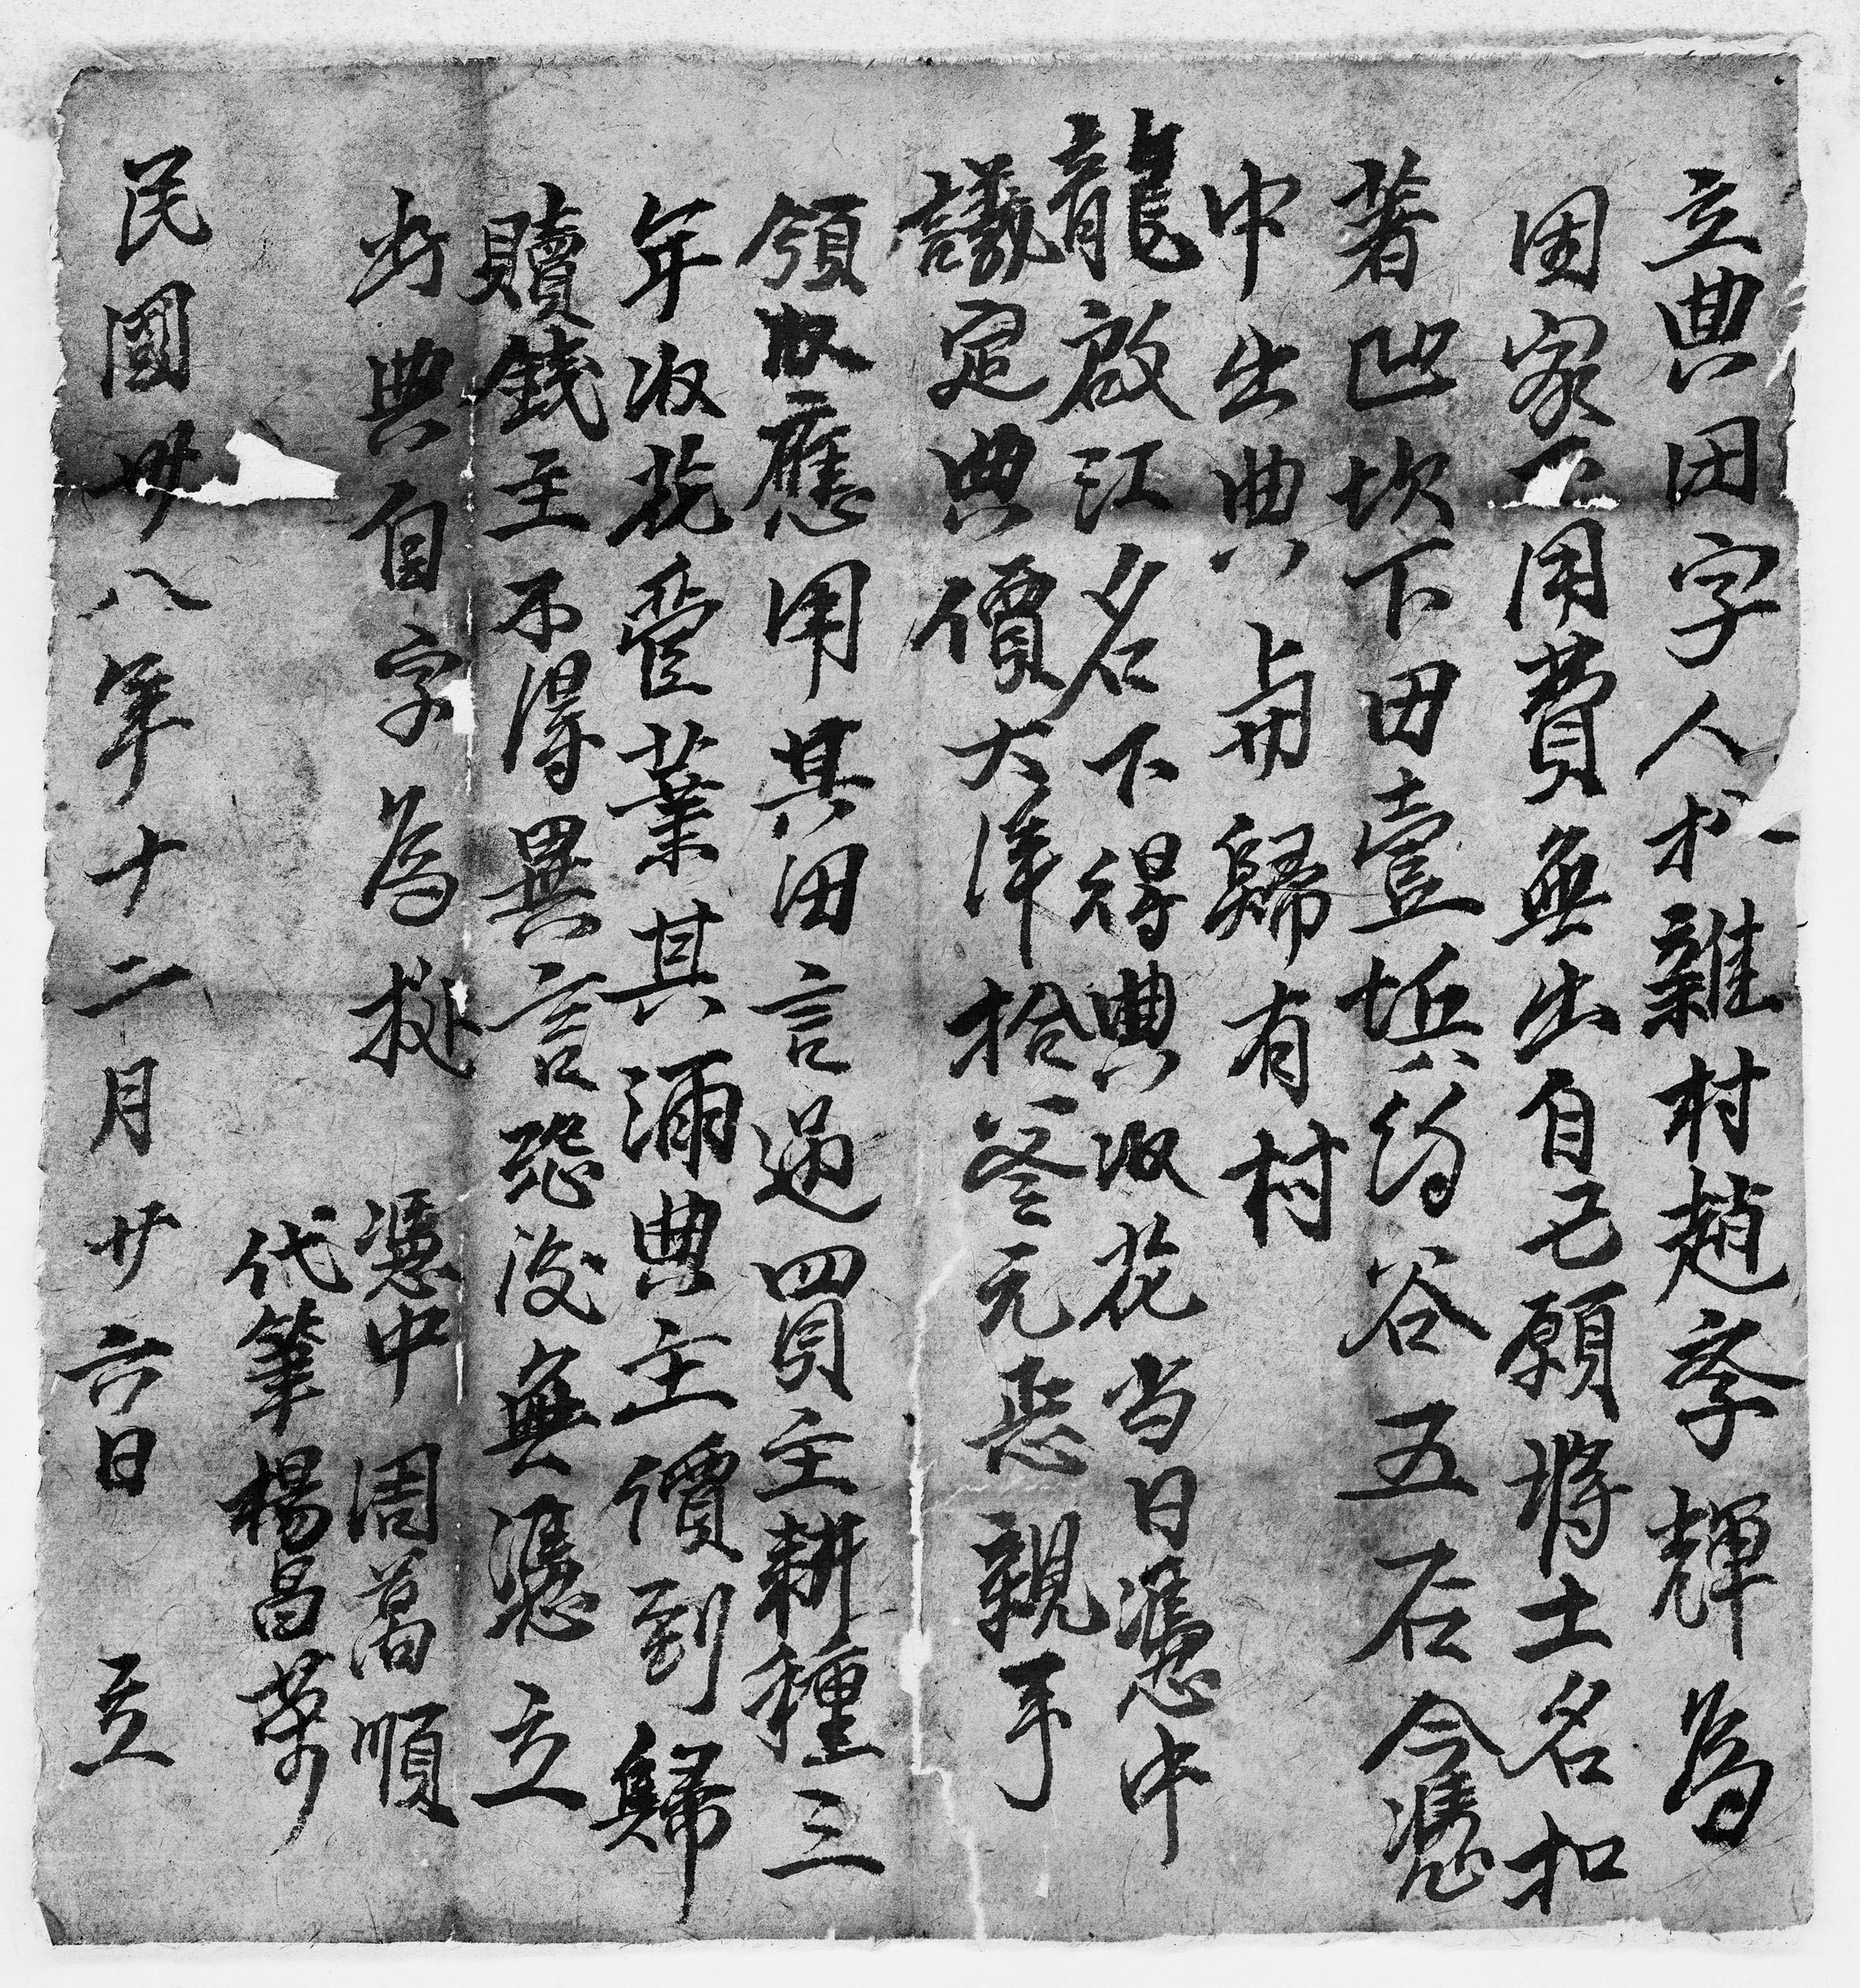 立典田字人扒雞村趙李輝為
因家下用費無出自己願將土名扣
著凹坎下田壹坵約谷五石今憑
中出典與歸有村
龍啟江名下得典收花当日憑中
議定典價大洋拾叁元悉親手
領收應用其田言過四買主耕種三
年收花管業其滿典主價到歸
贖錢主不得異言恐後無憑立
出典自字為據
憑中 周萬順
代筆 楊昌萬
民國卅八年十二月廿六日 立